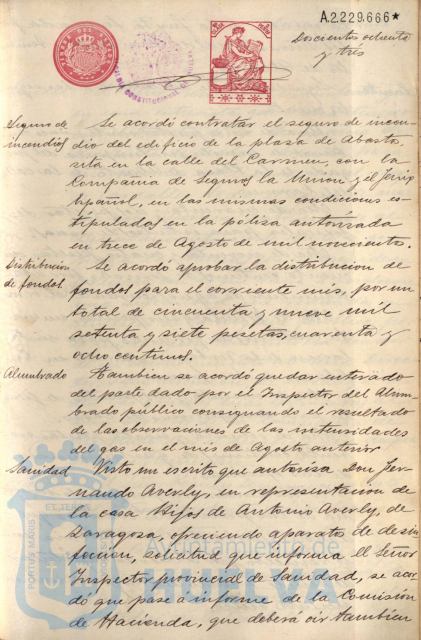 A.2.229.666★
Doscientos ochenta
y tres
Seguro de
incendios
Se acordó contratar el seguro de incen-
dio del edificio de la plaza de Abasto,
sita en la calle del Carmen, con la
Compañia de Seguros la Union y el Fenix
Español, en las mismas condiciones es-
tipuladas en la póliza autorizada
en trece de Agosto de mil novecientos.
Distribucion
de fondos
Se acordó aprobar la distribucion de
fondos para el corriente mes, por un
total de cincuenta y nueve mil
setenta y siete pesetas, cuarenta y
ocho centimos.
Alumbrado
Tambien se acordó quedar enterado
del parte dado por el Inspector del Alum-
brado público consignando el resultado
de las observaciones de las intensidades
del gas en el mes de Agosto anterior.
Sanidad
Visto un escrito que autoriza Don Fer-
nando Averly, en representacion de
la casa Hijos de Antonio Averly, de
Zaragoza, ofreciendo aparato de desin-
fección, solicitud que informa el Señor
Inspector provincial de Sanidad, se acor-
dó que pase á informe de la Comision
de Hacienda, que deberá oir tambien
Ayuntamiento de
HUELVA
PORTUS MARIS